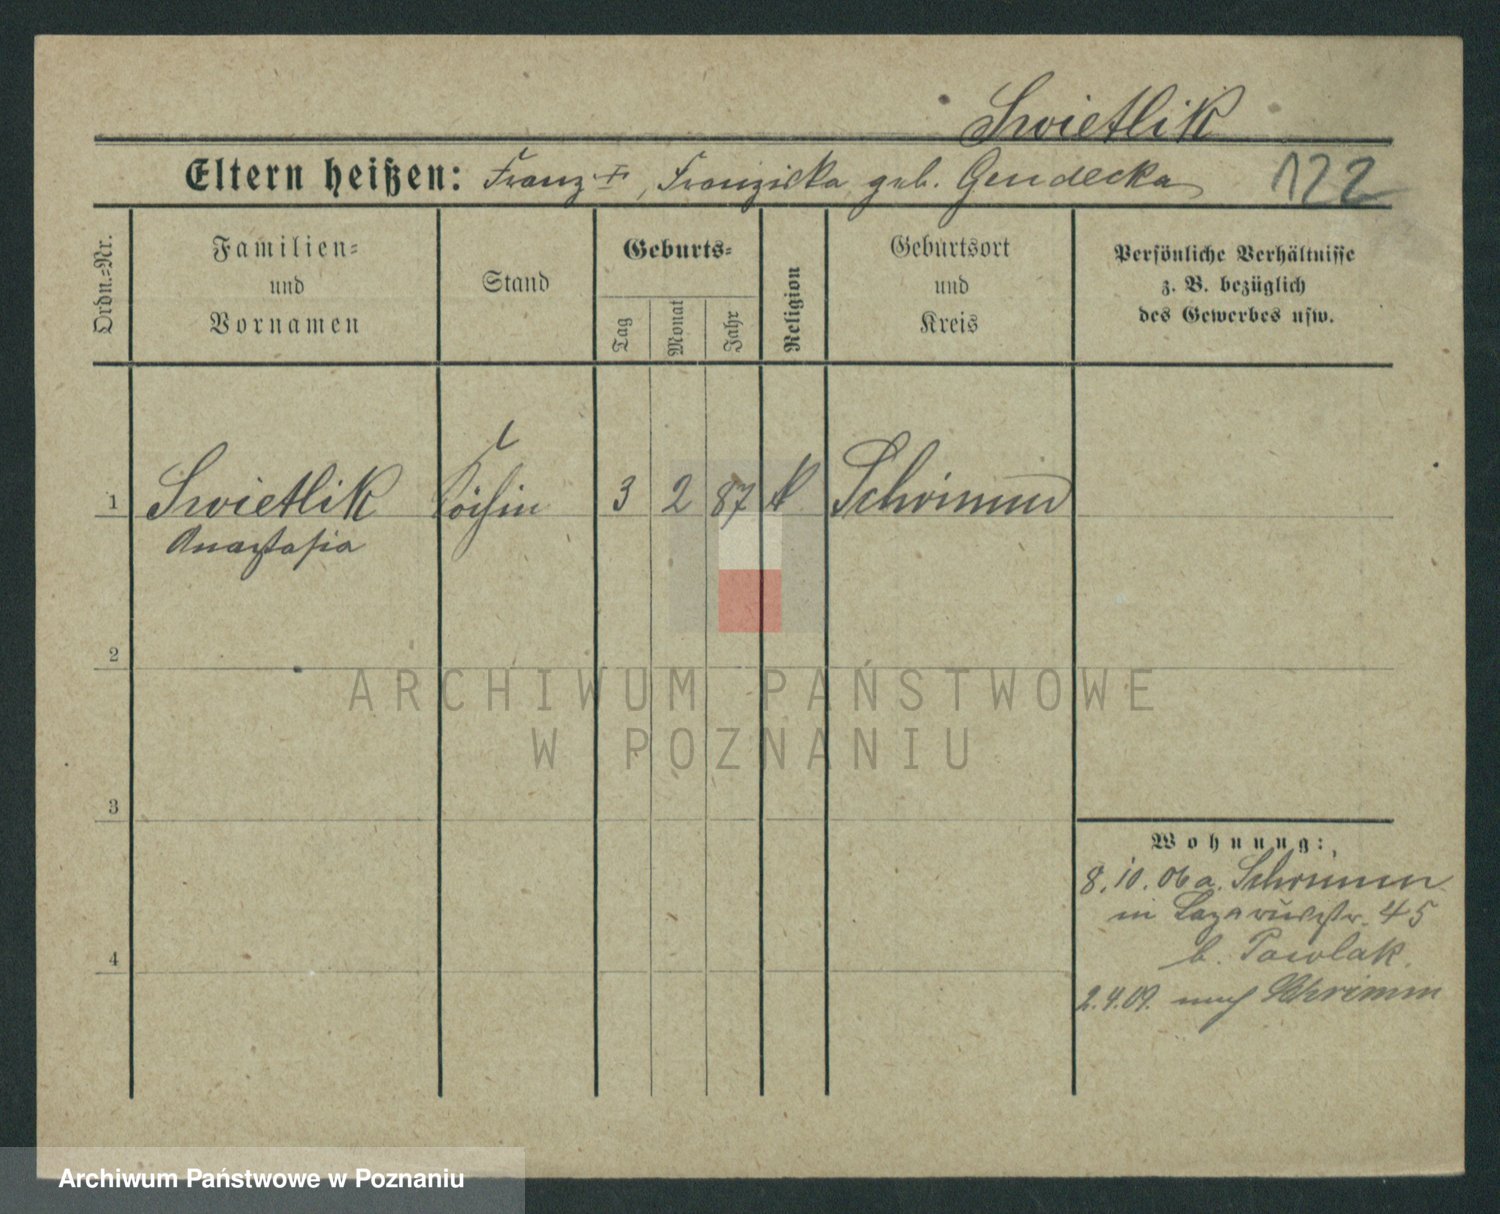 Swietlik
Eltern heißen: Franz +, Franziska geb. Gendecka
122
Ordn.-Nr.
Familien- und Vornamen
Stand
Geburts-
Tag
Monat
Jahr
Religion
Geburtsort und Kreis
Persönliche Verhältnisse
z. B. bezüglich
des Gewerbes usw.
1 Swietlik Köchin 3 2 87 k Schrimm
Anastasia
2
3
4
Wohnung:
8.10.06 a. Schrimm
in Lazarusstr. 45
b. Pawlak.
2.4.09. nach Schrimm
ARCHIWUM PAŃSTWOWE
W POZNANIU
Archiwum Państwowe w Poznaniu